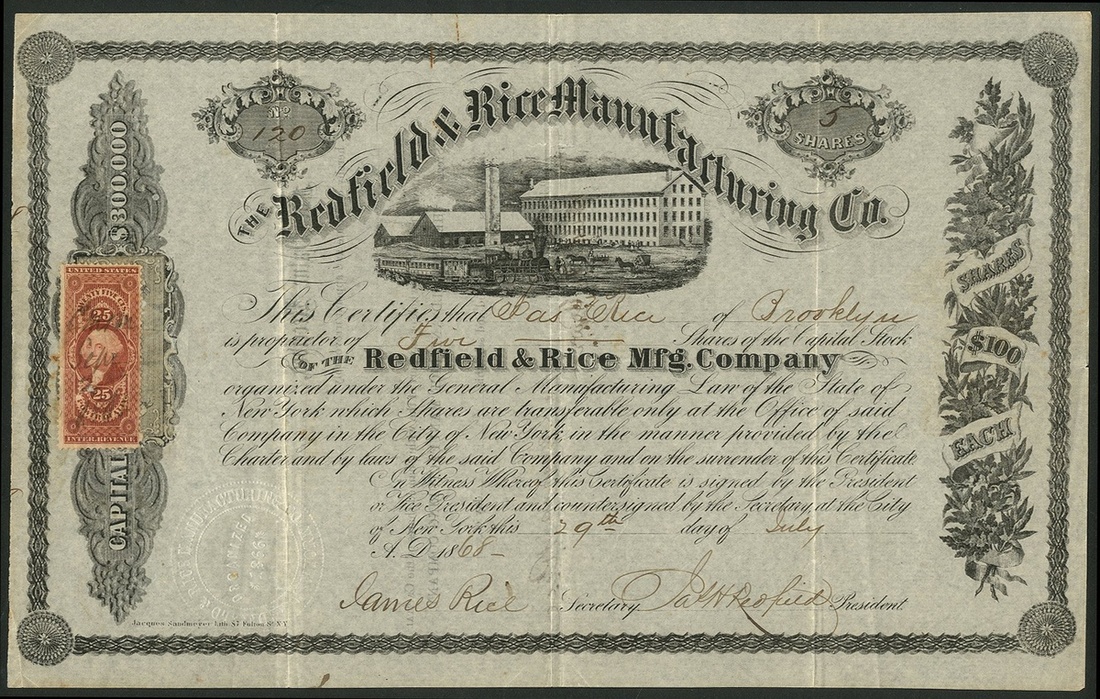 No 120
5 SHARES
THE Redfield & Rice Manufacturing Co.
CAPITAL $300,000
UNITED STATES
TWENTY FIVE CTS.
25
25
INTER. REVENUE
SHARES
$100
EACH
This Certifies that Jas Rice of Brooklyn
is proprietor of Five Shares of the Capital Stock
OF THE Redfield & Rice Mfg. Company
organized under the General Manufacturing Law of the State of
New York which Shares are transferable only at the Office of said
Company in the City of New York, in the manner provided by the
Charter and by laws of the said Company and on the surrender of this Certificate
In Witness Whereof this Certificate is signed by the President
or Vice President and countersigned by the Secretary, at the City
of New York this 29th day of July
A.D. 1868
James Rice Secretary Redfield President
ORGANIZED
Jacques Sandmeyer lith. 87 Fulton St. N.Y.